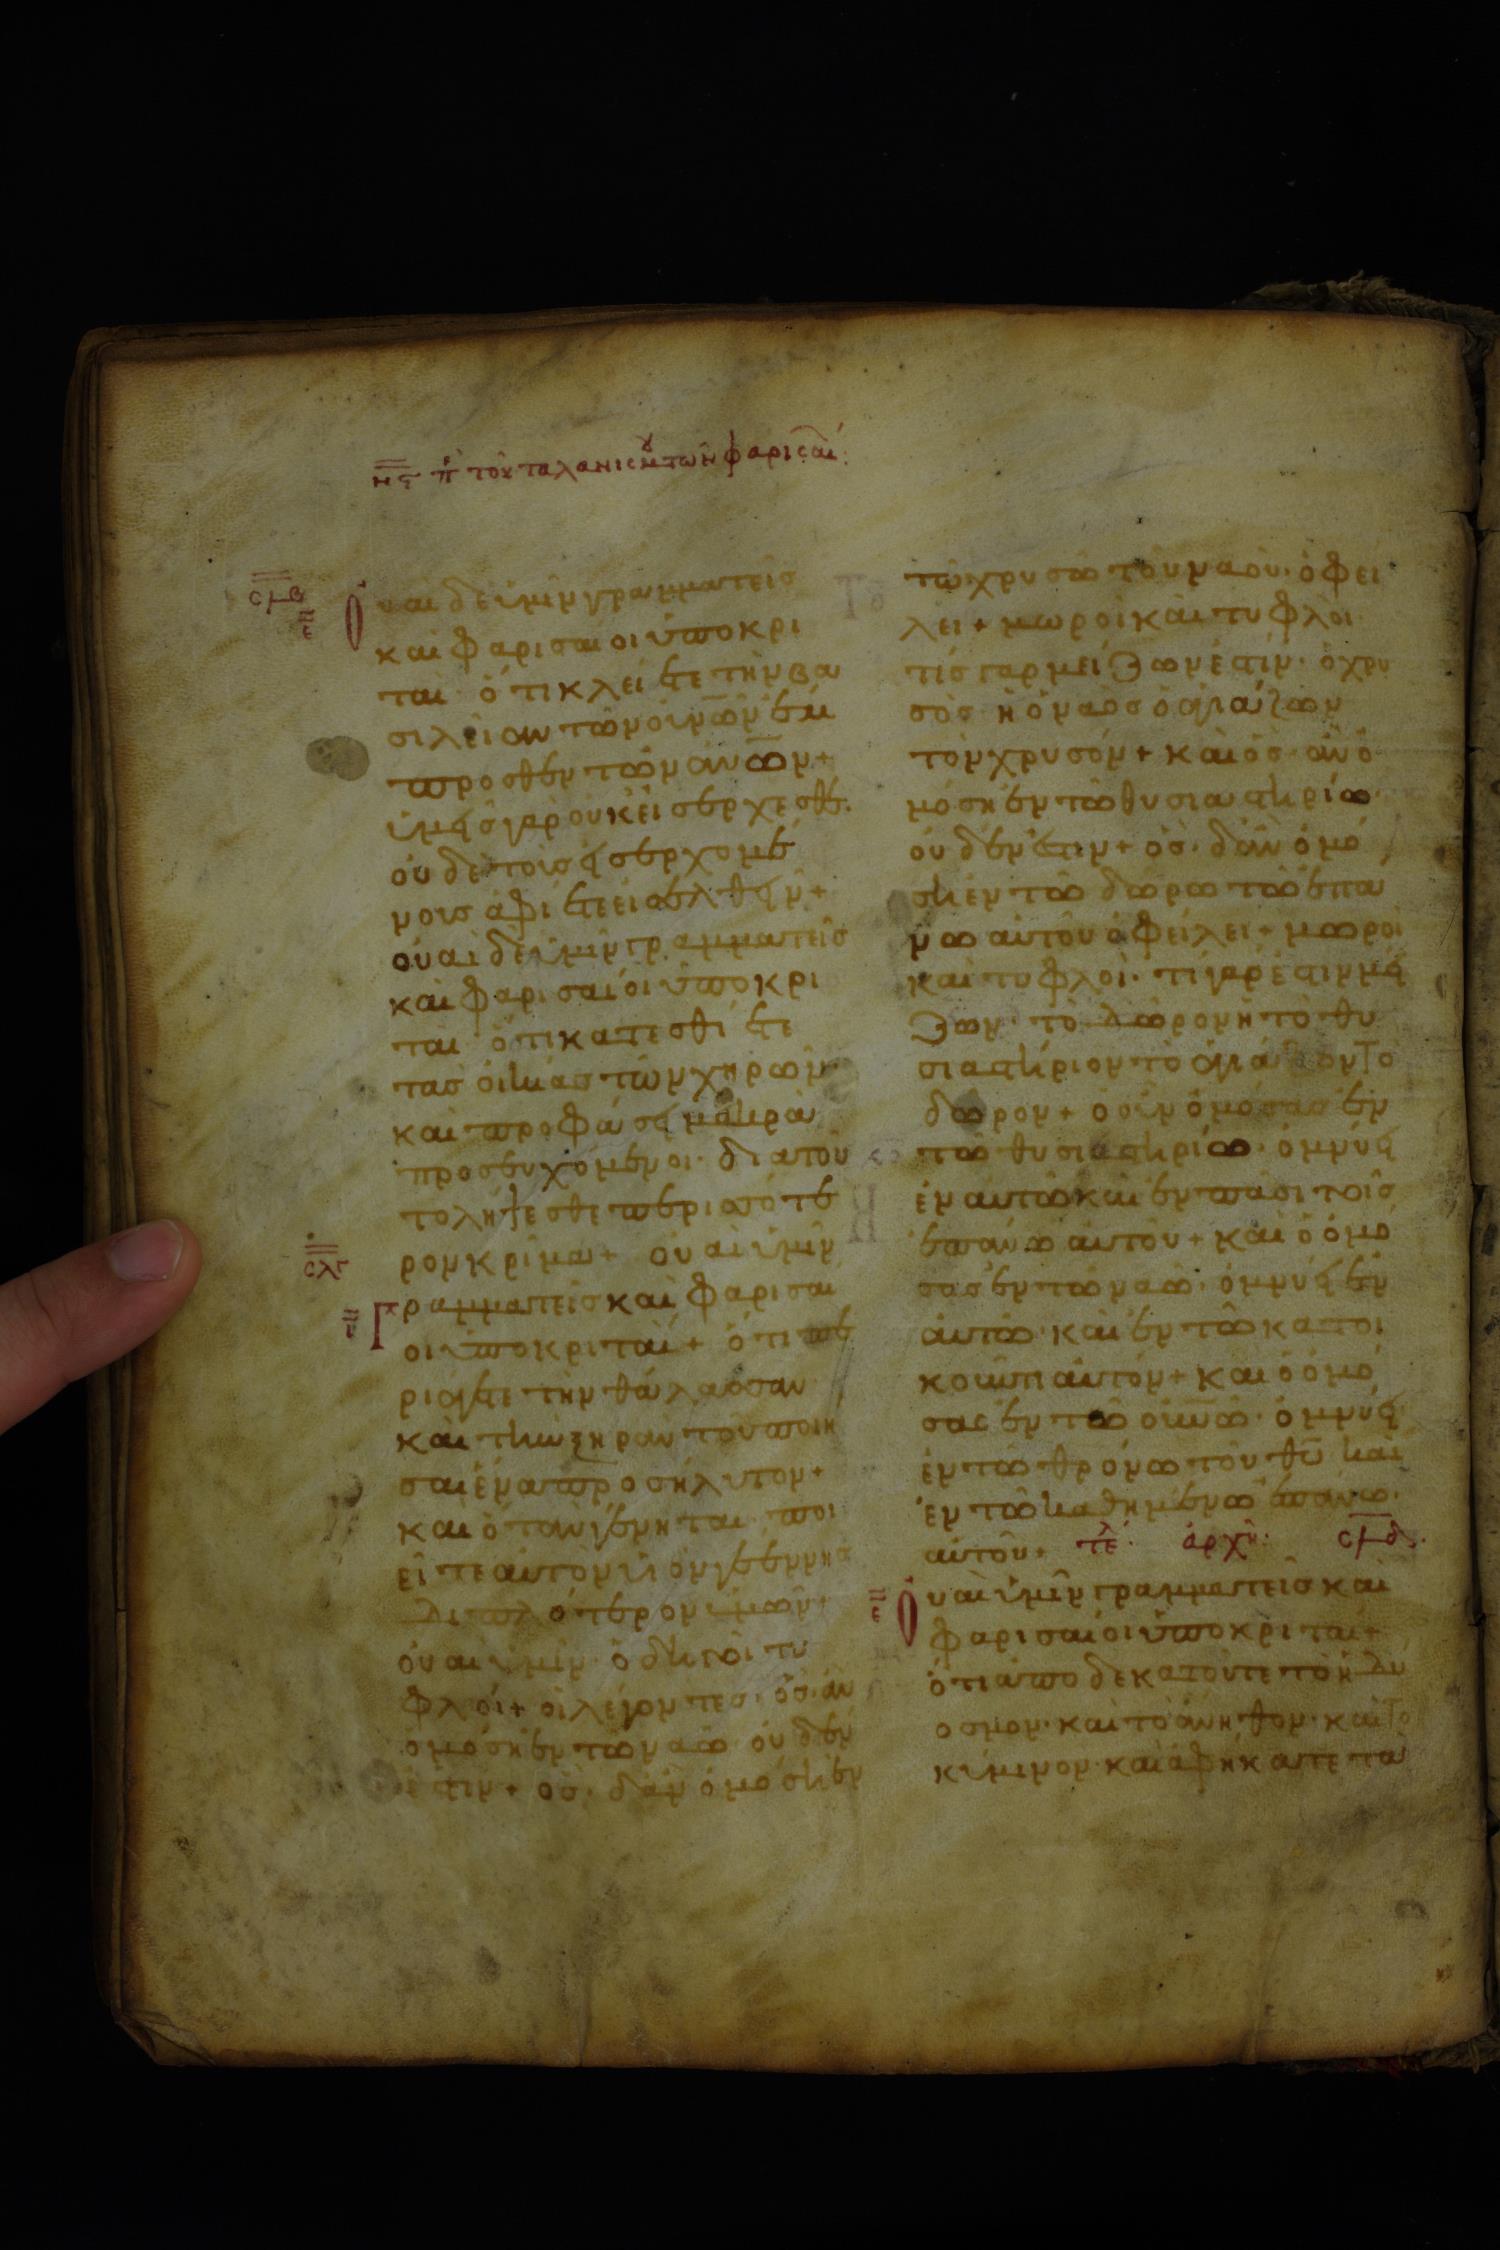 νϛ π τοῦ ταλανισμοῦ τῶν φαρισαί
σμβ
ε
Οὐαὶ δὲ ὑμῖν γραμματεῖς
καὶ φαρισαῖοι ὑποκρι
ταί· ὅτι κλείετε τὴν βα
σιλείαν τῶν οὐνῶν ἔμ
προσθεν τῶν ἀνων+
ὑμεῖς γὰρ οὐκ εἰσέρχεσθε.
οὐδὲ τοὺς εἰσερχομέ
νους ἀφίετε εἰσελθεῖν+
οὐαὶ δὲ ὑμῖν γραμματεῖς
καὶ φαρισαῖοι ὑποκρι
ταί· ὅτι κατεσθίετε
τὰς οἰκίας τῶν χηρῶν·
καὶ προφάσει μακρὰ
προσευχόμενοι· διὰ τοῦ
το λήψεσθε περισσότε
ρον κρίμα+ οὐαὶ ὑμῖν
σλγ
ε
Γραμματεῖς καὶ φαρισαῖ
οι ὑποκριταί+ ὅτι πε
ριάγετε τὴν θάλασσαν
καὶ τὴν ξηρὰν τοῦ ποιῆ
σαι ἕνα προσήλυτον+
καὶ ὅταν γένηται· ποι
εῖτε αὐτὸν υἱὸν γεέννης
διπλότερον ὑμῶν+
οὐαὶ ὑμῖν· ὁδηγοὶ τυ
φλοί+ οἱ λέγοντες· ὃς ἂν
ὀμόσῃ ἐν τῷ ναῷ· οὐδέν
ἐστιν+ ὃς· δ' ἂν ὀμόσῃ ἐν
τῷ χρυσῷ τοῦ ναοῦ· ὀφεί
λει+ μωροὶ καὶ τυφλοί·
τίς γὰρ μείζων ἐστίν· ὁ χρυ
σὸς ἢ ὁ ναὸς ὁ ἁγιάζων
τὸν χρυσόν+ καὶ ὃς· ἂν ὀ
μόσῃ ἐν τῷ θυσιαστηρίῳ·
οὐδέν ἐστιν+ ὃς· δ' ἂν ὀμό
σῃ ἐν τῷ δώρῳ τῷ ἐπά
νω αὐτοῦ ὀφείλει+ μωροὶ
καὶ τυφλοί· τί γάρ ἐστιν μεῖ
ζων· τὸ δῶρον ἢ τὸ θυ
σιαστήριον τὸ ἁγιάζον τὸ
δῶρον+ ὁ οὖν ὀμόσας ἐν
τῷ θυσιαστηρίῳ· ὀμνύει
ἐν αὐτῷ καὶ ἐν πᾶσι τοῖς
ἐπάνω αὐτοῦ+ καὶ ὁ ὀμό
σας ἐν τῷ ναῷ· ὀμνύει ἐν
αὐτῷ· καὶ ἐν τῷ κατοι
κοῦντι αὐτόν+ καὶ ὁ ὀμό
σας ἐν τῷ οὐνῷ· ὀμνύει
ἐν τῷ θρόνῳ τοῦ θῦ καὶ
ἐν τῷ καθημένῳ ἐπάνω·
αὐτοῦ+ τέλ. ἀρχὴ: σμδ.
ε
Οὐαὶ ὑμῖν γραμματεῖς καὶ
φαρισαῖοι ὑποκριταί+
ὅτι ἀποδεκατοῦτε τὸ ἡδύ
οσμον· καὶ τὸ ἄνηθον· καὶ τὸ
κύμινον· καὶ ἀφήκατε τὰ